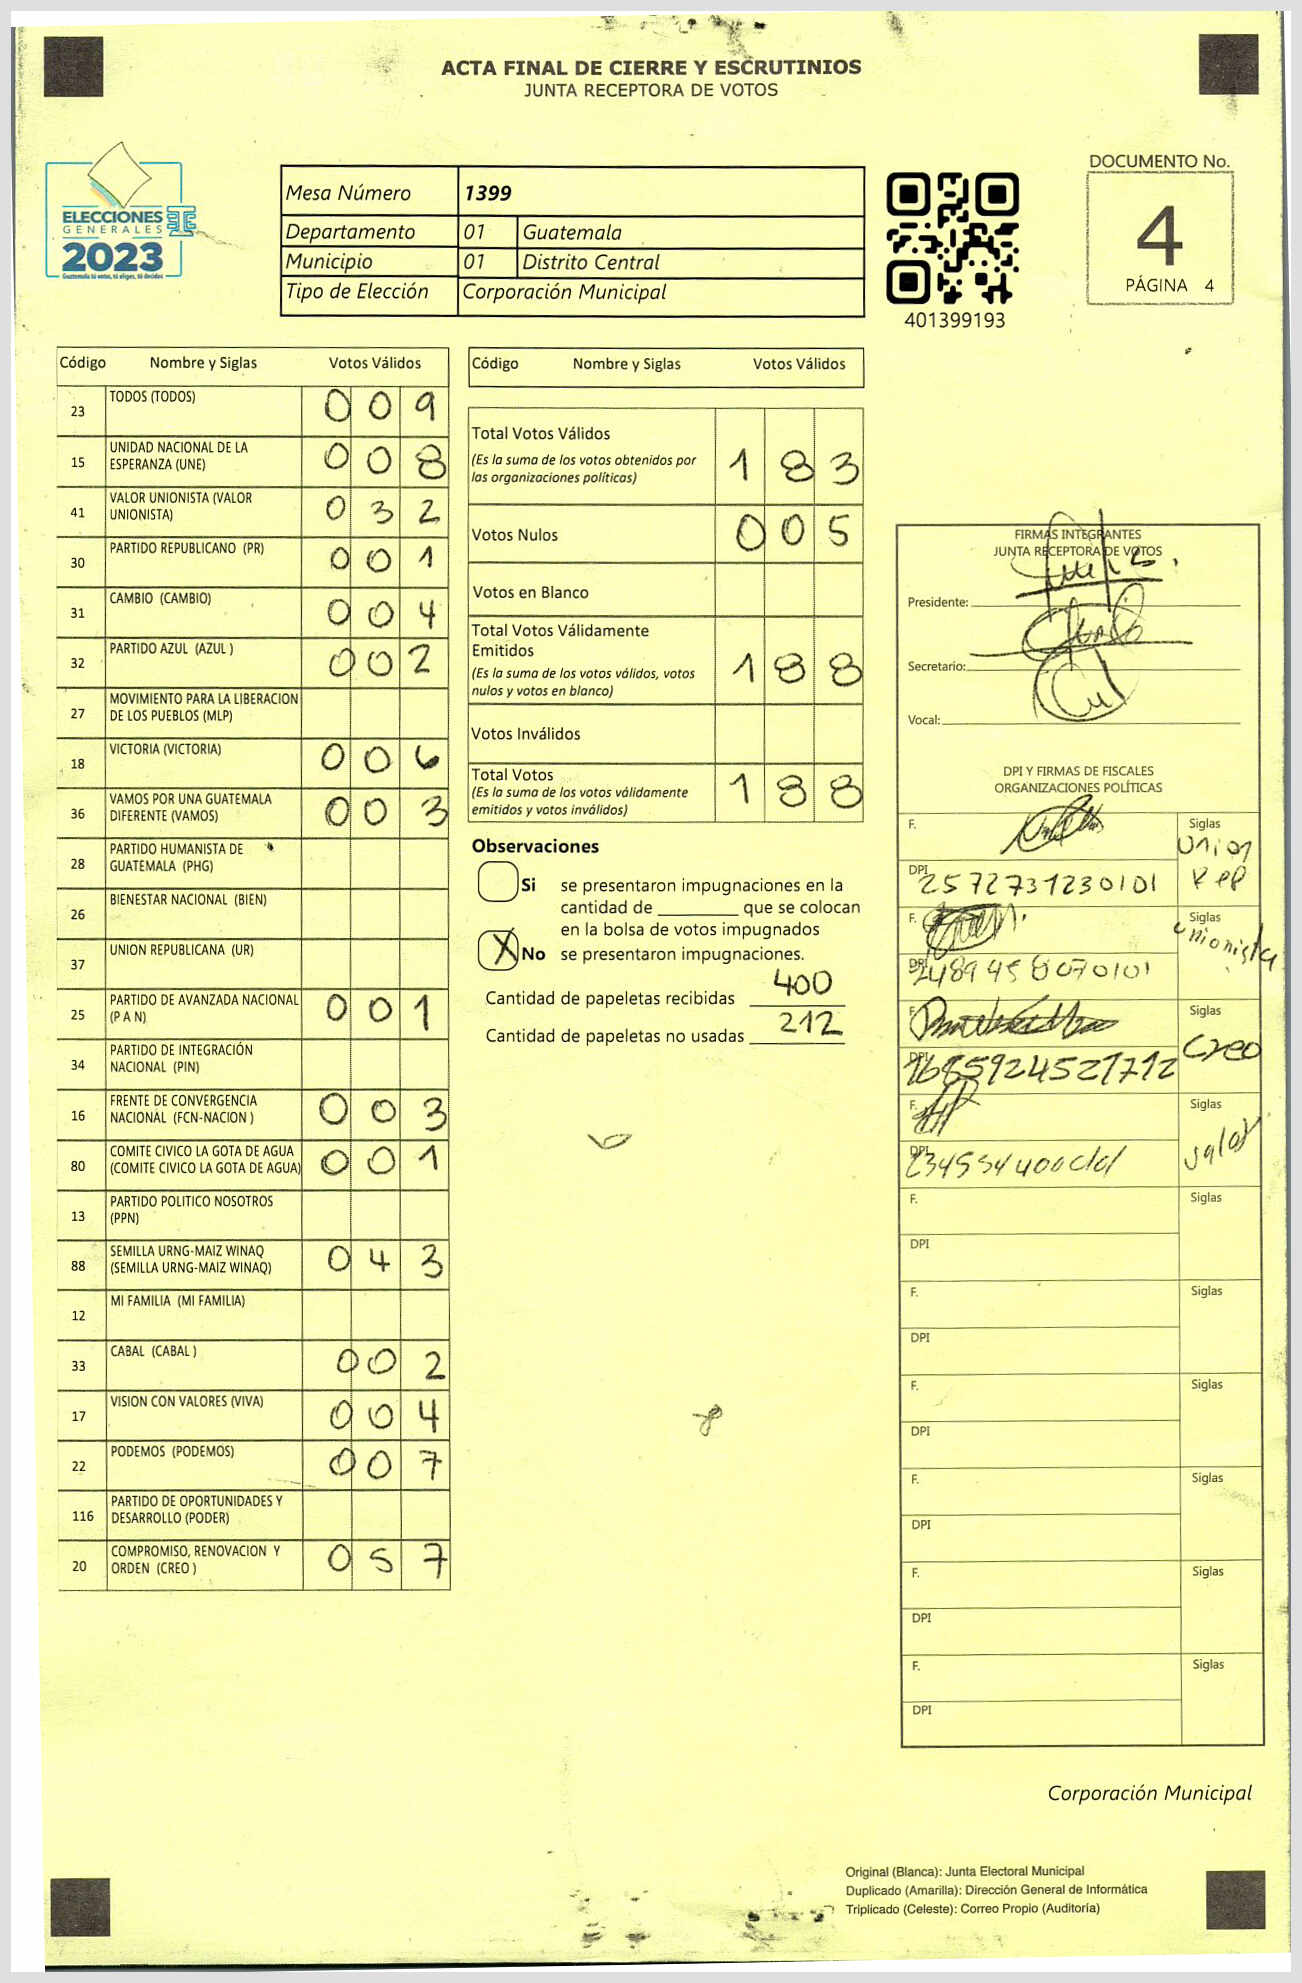 ACTA FINAL DE CIERRE Y ESCRUTINIOS
JUNTA RECEPTORA DE VOTOS
ELECCIONES
GENERALES
2023
Guatemala tú votas, tú eliges, tú decides
Mesa Número 1399
Departamento 01 Guatemala
Municipio 01 Distrito Central
Tipo de Elección Corporación Municipal
401399193
DOCUMENTO No.
4
PÁGINA 4
Código Nombre y Siglas Votos Válidos
23 TODOS (TODOS) 0 0 9
15 UNIDAD NACIONAL DE LA ESPERANZA (UNE) 0 0 8
41 VALOR UNIONISTA (VALOR UNIONISTA) 0 3 2
30 PARTIDO REPUBLICANO (PR) 0 0 1
31 CAMBIO (CAMBIO) 0 0 4
32 PARTIDO AZUL (AZUL ) 0 0 2
27 MOVIMIENTO PARA LA LIBERACION DE LOS PUEBLOS (MLP)
18 VICTORIA (VICTORIA) 0 0 6
36 VAMOS POR UNA GUATEMALA DIFERENTE (VAMOS) 0 0 3
28 PARTIDO HUMANISTA DE GUATEMALA (PHG)
26 BIENESTAR NACIONAL (BIEN)
37 UNION REPUBLICANA (UR)
25 PARTIDO DE AVANZADA NACIONAL (P A N) 0 0 1
34 PARTIDO DE INTEGRACIÓN NACIONAL (PIN)
16 FRENTE DE CONVERGENCIA NACIONAL (FCN-NACION ) 0 0 3
80 COMITE CIVICO LA GOTA DE AGUA (COMITE CIVICO LA GOTA DE AGUA) 0 0 1
13 PARTIDO POLITICO NOSOTROS (PPN)
88 SEMILLA URNG-MAIZ WINAQ (SEMILLA URNG-MAIZ WINAQ) 0 4 3
12 MI FAMILIA (MI FAMILIA)
33 CABAL (CABAL ) 0 0 2
17 VISION CON VALORES (VIVA) 0 0 4
22 PODEMOS (PODEMOS) 0 0 7
116 PARTIDO DE OPORTUNIDADES Y DESARROLLO (PODER)
20 COMPROMISO, RENOVACION Y ORDEN (CREO ) 0 5 7
Código Nombre y Siglas Votos Válidos
Total Votos Válidos 1 8 3
(Es la suma de los votos obtenidos por
las organizaciones políticas)
Votos Nulos 0 0 5
Votos en Blanco
Total Votos Válidamente
Emitidos 1 8 8
(Es la suma de los votos válidos, votos
nulos y votos en blanco)
Votos Inválidos
Total Votos 1 8 8
(Es la suma de los votos válidamente
emitidos y votos inválidos)
Observaciones
Si se presentaron impugnaciones en la
cantidad de ________ que se colocan
en la bolsa de votos impugnados
X No se presentaron impugnaciones.
Cantidad de papeletas recibidas 400
Cantidad de papeletas no usadas 212
FIRMAS INTEGRANTES
JUNTA RECEPTORA DE VOTOS
Presidente:
Secretario:
Vocal:
DPI Y FIRMAS DE FISCALES
ORGANIZACIONES POLÍTICAS
F. Siglas
Union
Rep
DPI 2572731230101
F. Siglas
Unionista
DPI
F. Siglas
Creo
DPI 1685924521712
F. Siglas
DPI
F. Siglas
DPI
F. Siglas
DPI
F. Siglas
DPI
F. Siglas
DPI
F. Siglas
DPI
F. Siglas
DPI
Corporación Municipal
Original (Blanca): Junta Electoral Municipal
Duplicado (Amarilla): Dirección General de Informática
Triplicado (Celeste): Correo Propio (Auditoría)